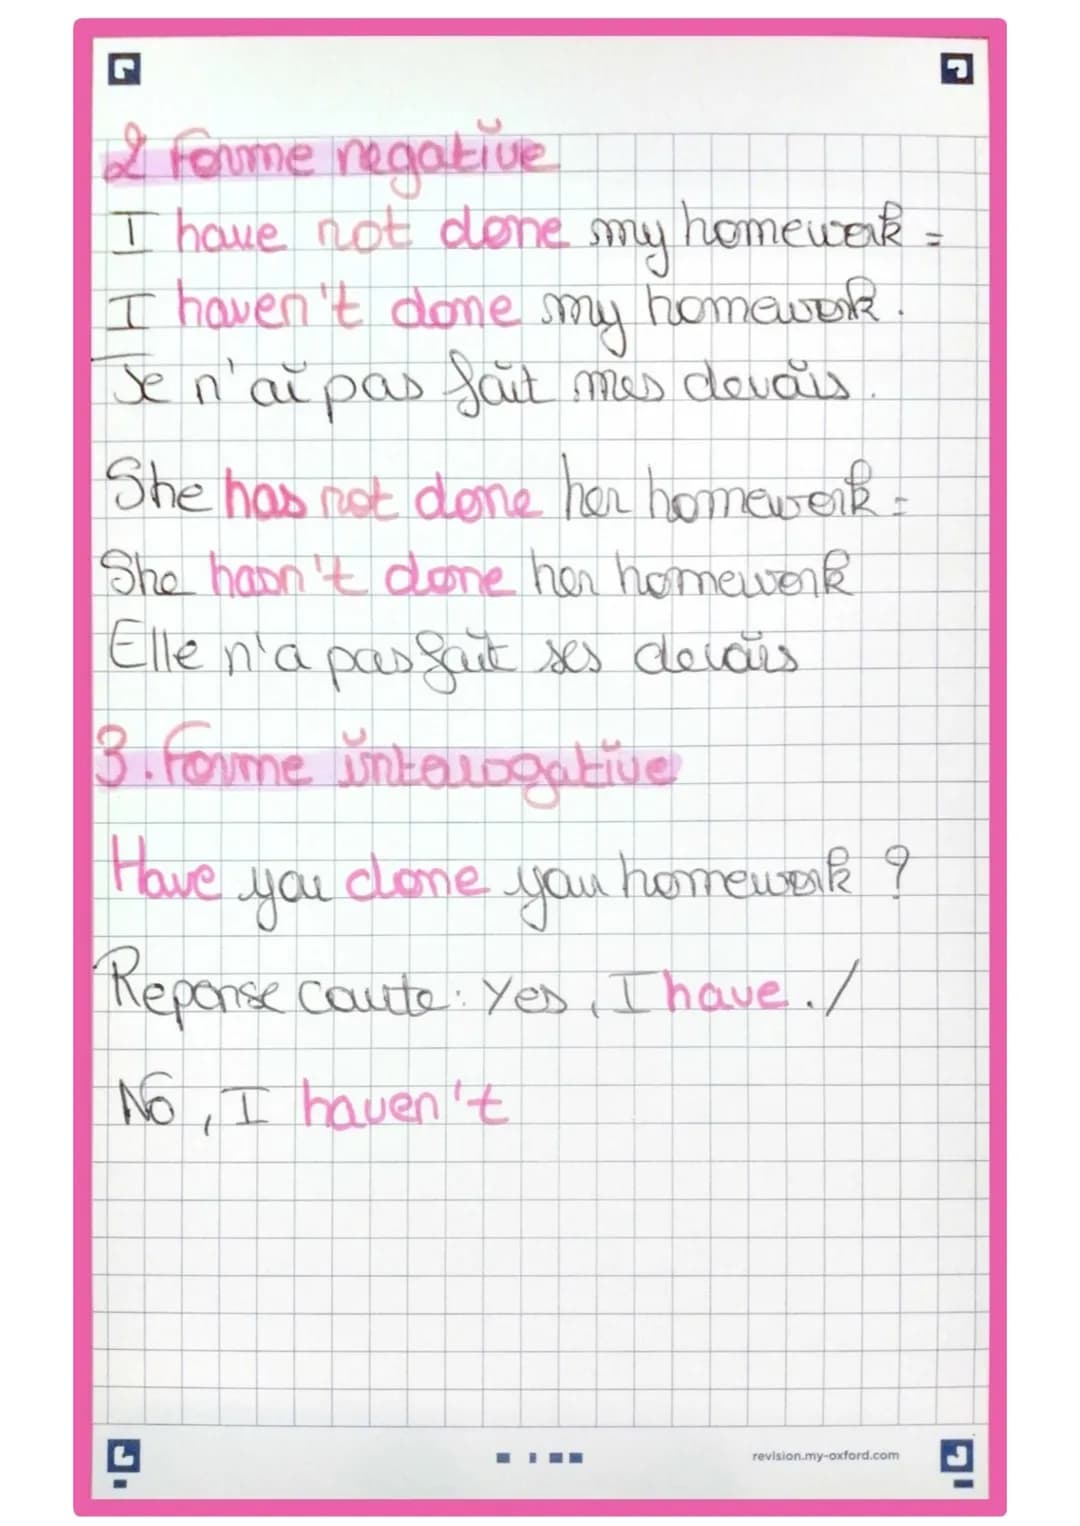 2 Forme negative
I have not done my homework =
I haven't done my homework.
Je n'ai pas fait mes devoirs.
She has not done her homework =
She hasn't done her homework
Elle n'a pas fait ses devoirs
3. Forme interrogative
Have you done your homework ?
Reponse courte : Yes, I have. /
No, I haven't
revision.my-oxford.com